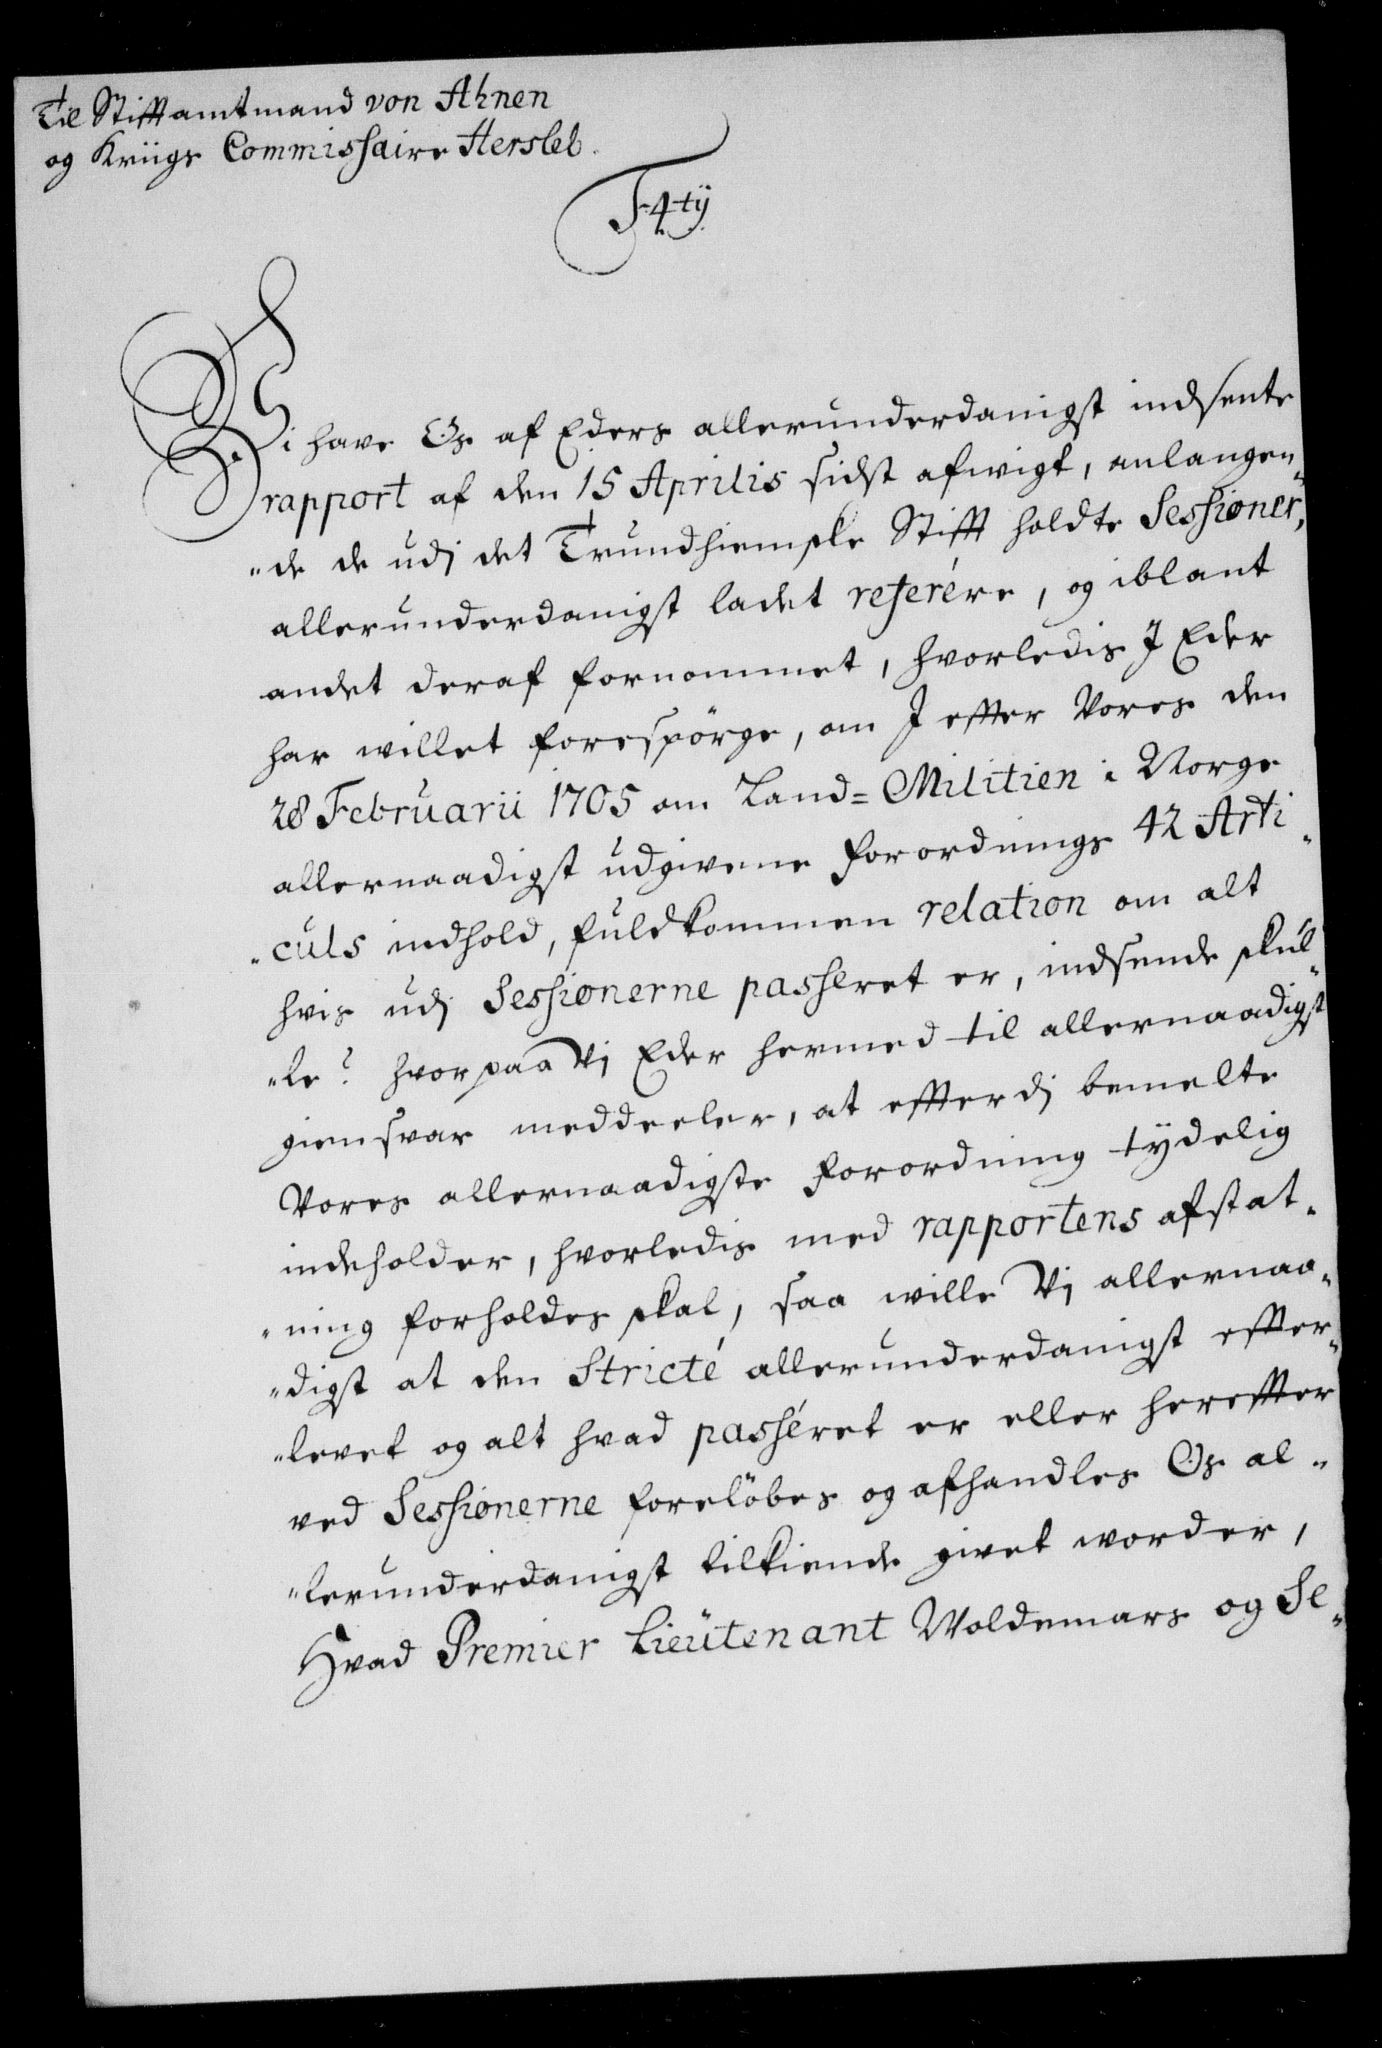 Til Stifftamtmand von Ahnen
og Kriigs Commissaire Hersleb.
F 4tÿ
Vi have Os af Eders allerunderdanigst indsente
rapport af den 15 Aprilis sidst afwigt, anlangen„
„de de udj det Trundhiemske Stifft holdte Sessioner,
allerunderdanigst ladet referére, og iblant
andet deraf fornommet, hvorledis J Eder
har willet forespörge, om J effter Vores den
28 Februarii 1705 om Land=Militien i Norge
allernaadigst udgivene Forordnings 42 Arti„
„culs indhold, fuldkommen relation om alt
hvis udj Sessionerne passeret er, indsende skul„
„le? hvorpaa Vj Eder hermed til allernaadigst
giensvar meddeeler, at effterdj bemelte
Vores allernaadigste Forordning tydelig
indeholder, hvorledis med rapportens afstat„
„ning forholdes skal, saa wille Vj allernaa„
„digst at den Stricté allerunderdanigst effter„
„levet og alt hvad passéret er eller hereffter
ved Sessionerne foreløbes og afhandles Os al„
„lerunderdanigst tilkiende givet worder,
Hvad Premier Lieütenant Woldemars og Se„